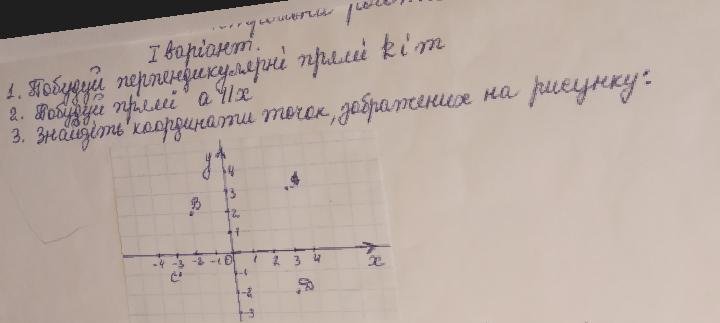 І варіант.
1. Побудуй перпендикулярні прямі k і m
2. Побудуй прямі a || x
3. Знайдіть координати точок, зображених на рисунку:
y
4
A
3
B
2
1
-4 -3 -2 -1 0 1 2 3 4 x
C
-1
D
-2
-3